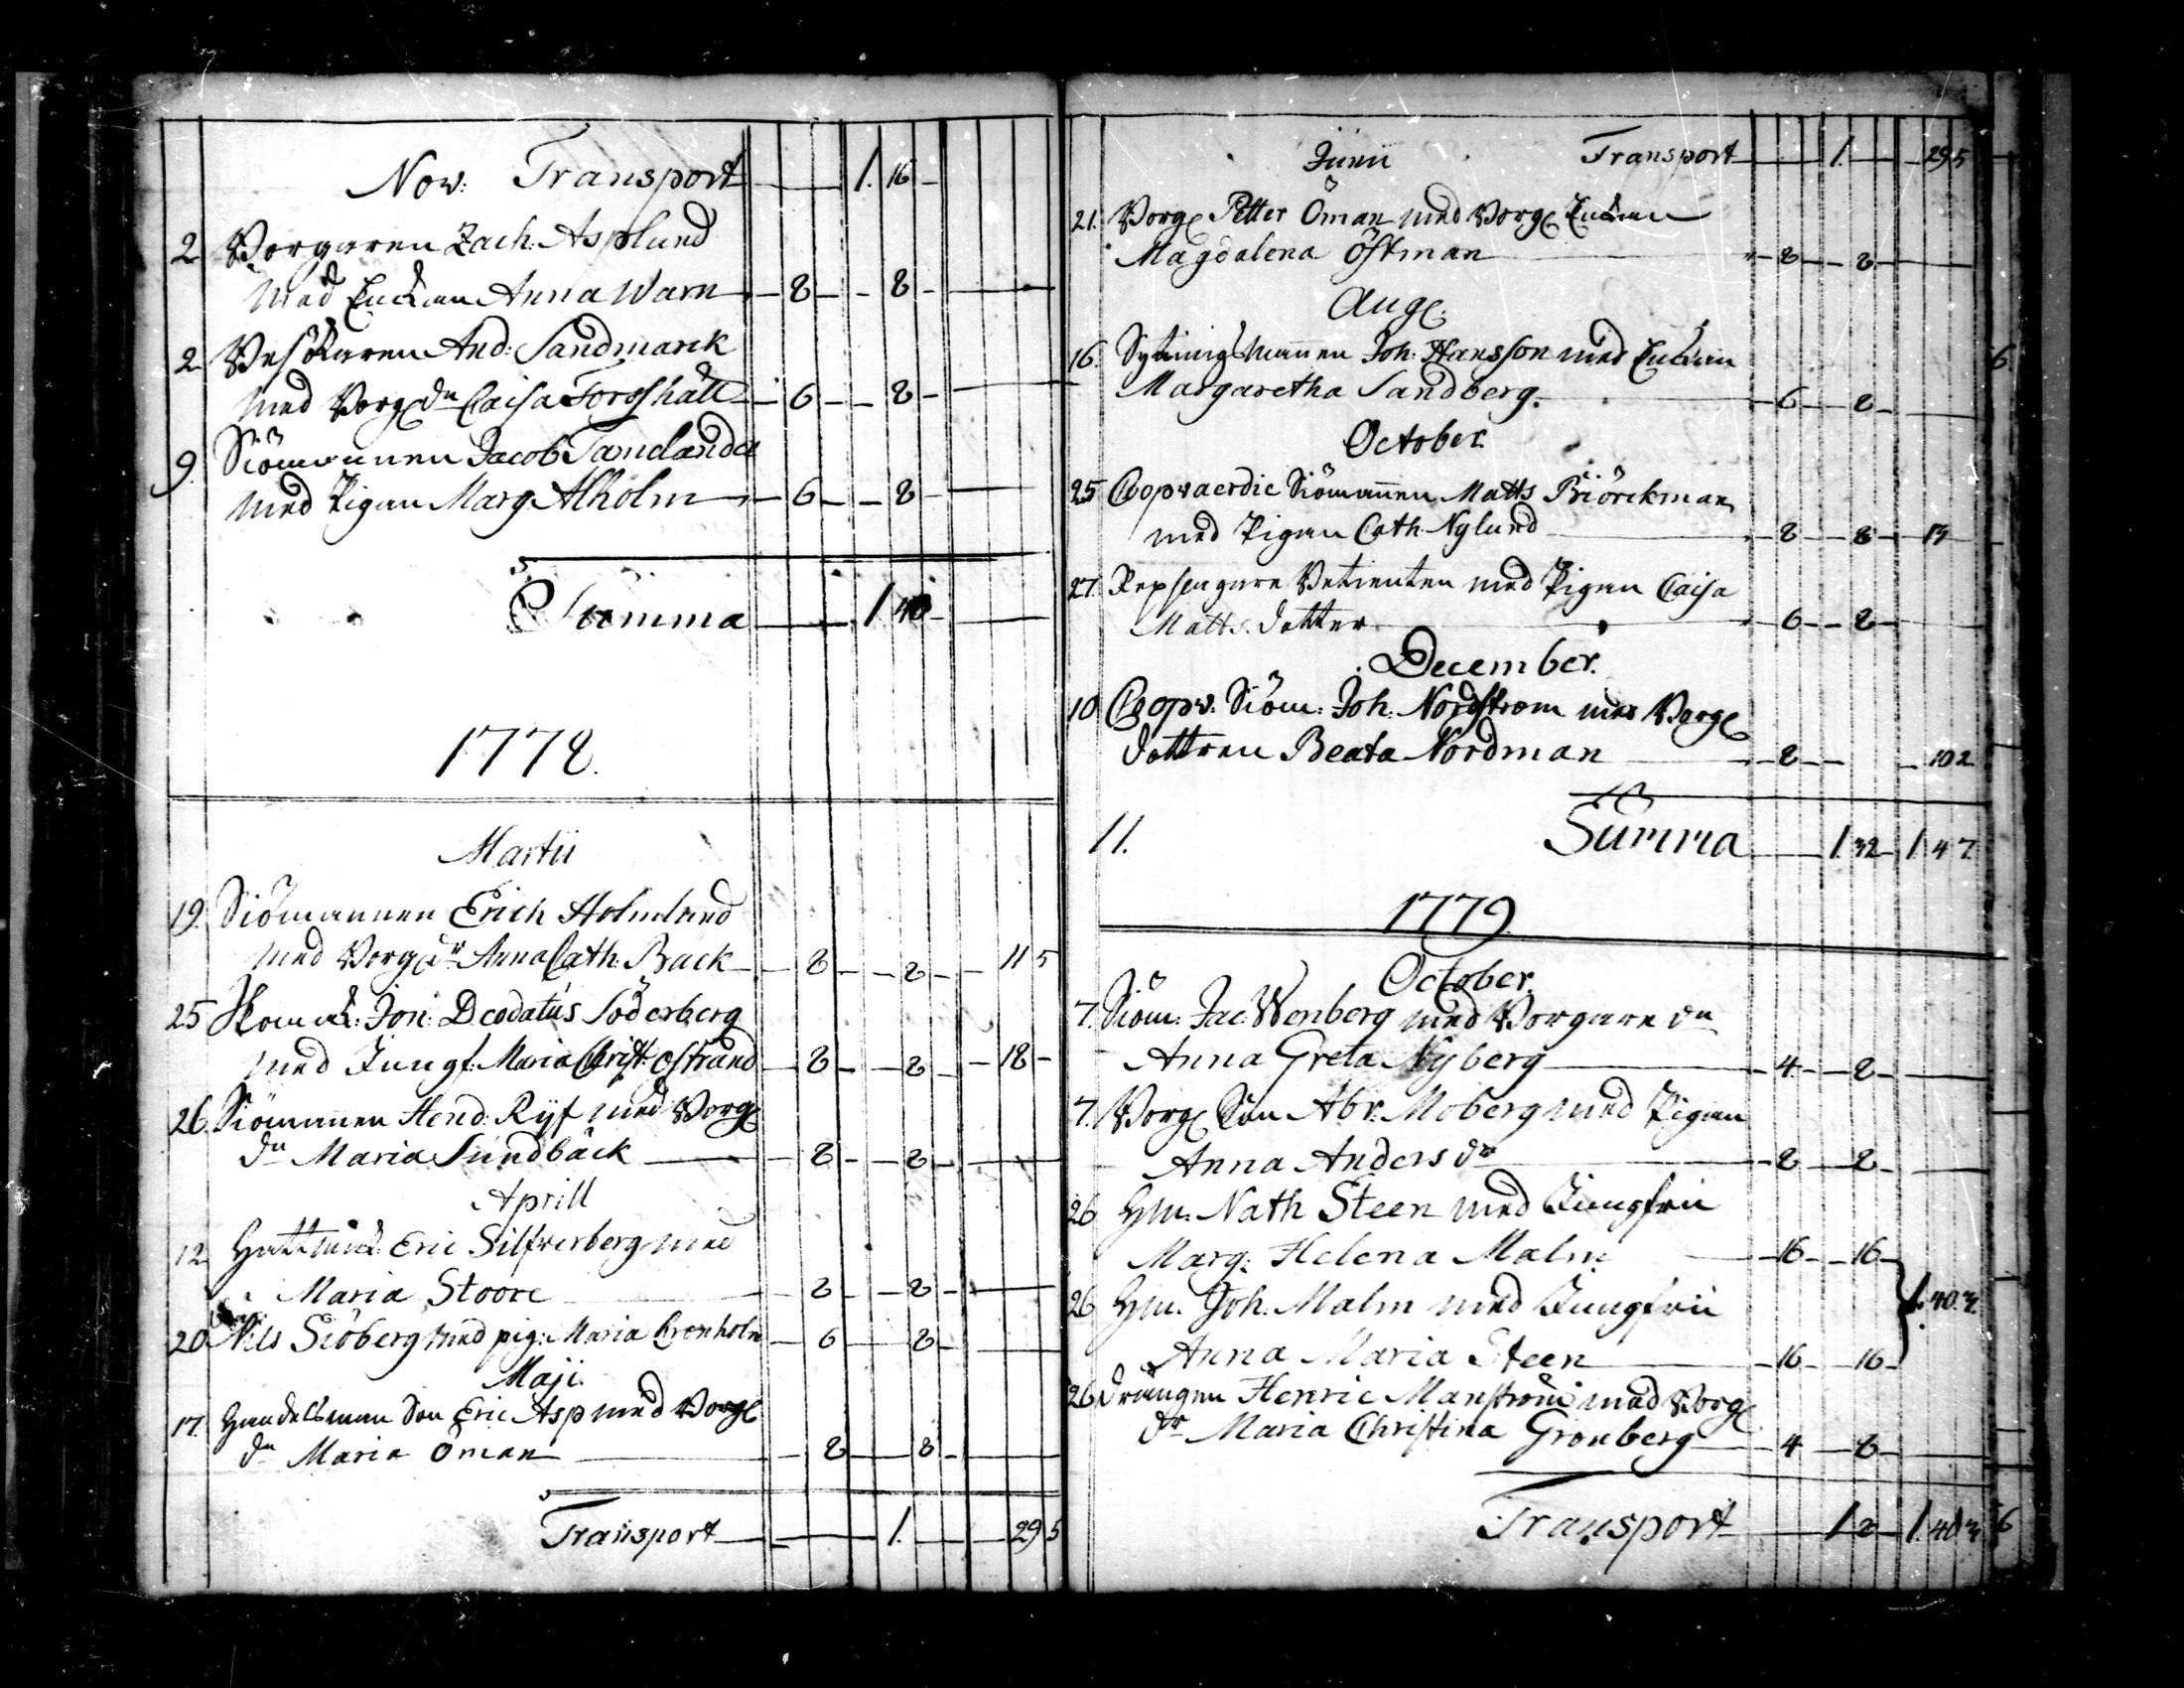 Nov: Transport — 1. 16 —
2 Borgaren Zach. Asplund
med Enkan Anna Warn — 8 — 8 —
2 Besökaren And: Sandmark
med Borg dn Caisa Forsshäll — 6 — 8 —
9. Siömannen Jacob Tamelander
med Pigan Marg Alholm — 6 — 8 —
Summa — 1. 40 —
1778.
Martii
19. Siömannen Erich Holmlund
med Borg dr Anna Cath: Back — 8 — 8 — 11 5
25 Skomak: Jon: Deodatus Söderberg
med Jungf: Maria Christ: Ostrand — 8 — 8 — 18 —
26. Siömannen Hend: Ryf med Borg
dn Maria Sundbäck — 8 — 8 —
Aprill
12 Hattmak: Eric Silfverberg med
Maria Stoore — 8 — 8 —
20 Nils Siöberg med pig: Maria Cronholm — 6 — 8 —
Maji.
17. Handelsman Son Eric Asp med Borg
dn Maria Öman — 8 — 8 —
Transport — 1. — 29 5
Junii Transport — 1. — 29 5
21. Borg Petter Öman med Borg Enkan
Magdalena Östman — 8 — 8 —
Aug
16. Sytningsmannen Joh: Hansson med Enkan
Margaretha Sandberg. — 6 — 8 —
October.
25 Coopvaerdie Siömannen Matts Biörckman
med Pigan Cath: Nylund — 8 — 8 — 19
27. Repslagare Betienten med Pigan Caisa
Matts dotter — 6 — 8 —
December.
10 Coopv: Siöm: Joh: Nordstrom med Borg
dottren Beata Nordman — 8 — 10 2
11. Summa — 1 32 — 1 4 7
1779.
October.
7. Siöm: Jac: Wenberg med Borgare dn
Anna Greta Nyberg — 4 — 8 —
7. Borg Son Abr: Moberg med Pigan
Anna Anders dr — 8 — 8 —
26 Hm. Nath Steen med Jungfru
Marg: Helena Malm — 16 — 16 —
26 Hm. Joh. Malm med Jungfru
1. 40.
Anna Maria Steen — 16 — 16 —
26 Drängen Henric Manström med Borg
dr Maria Christina Gronberg — 4 — 8 —
Transport — 1 8 — 1. 40